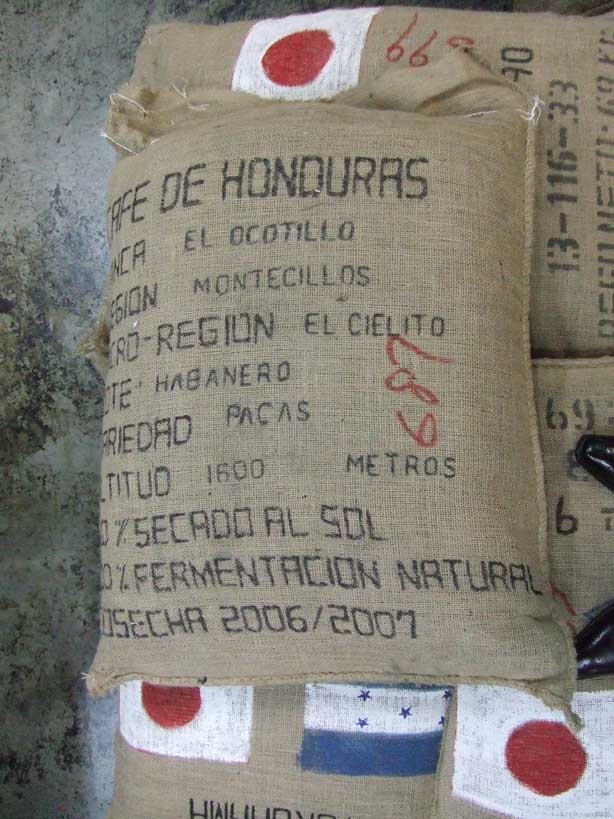 668
90
13-116-33
CAFE DE HONDURAS
FINCA EL OCOTILLO
REGION MONTECILLOS
MICRO-REGION EL CIELITO
LOTE HABANERO
VARIEDAD PACAS
ALTITUD 1600 METROS
% SECADO AL SOL
% FERMENTACION NATURAL
COSECHA 2006/2007
687
69
6